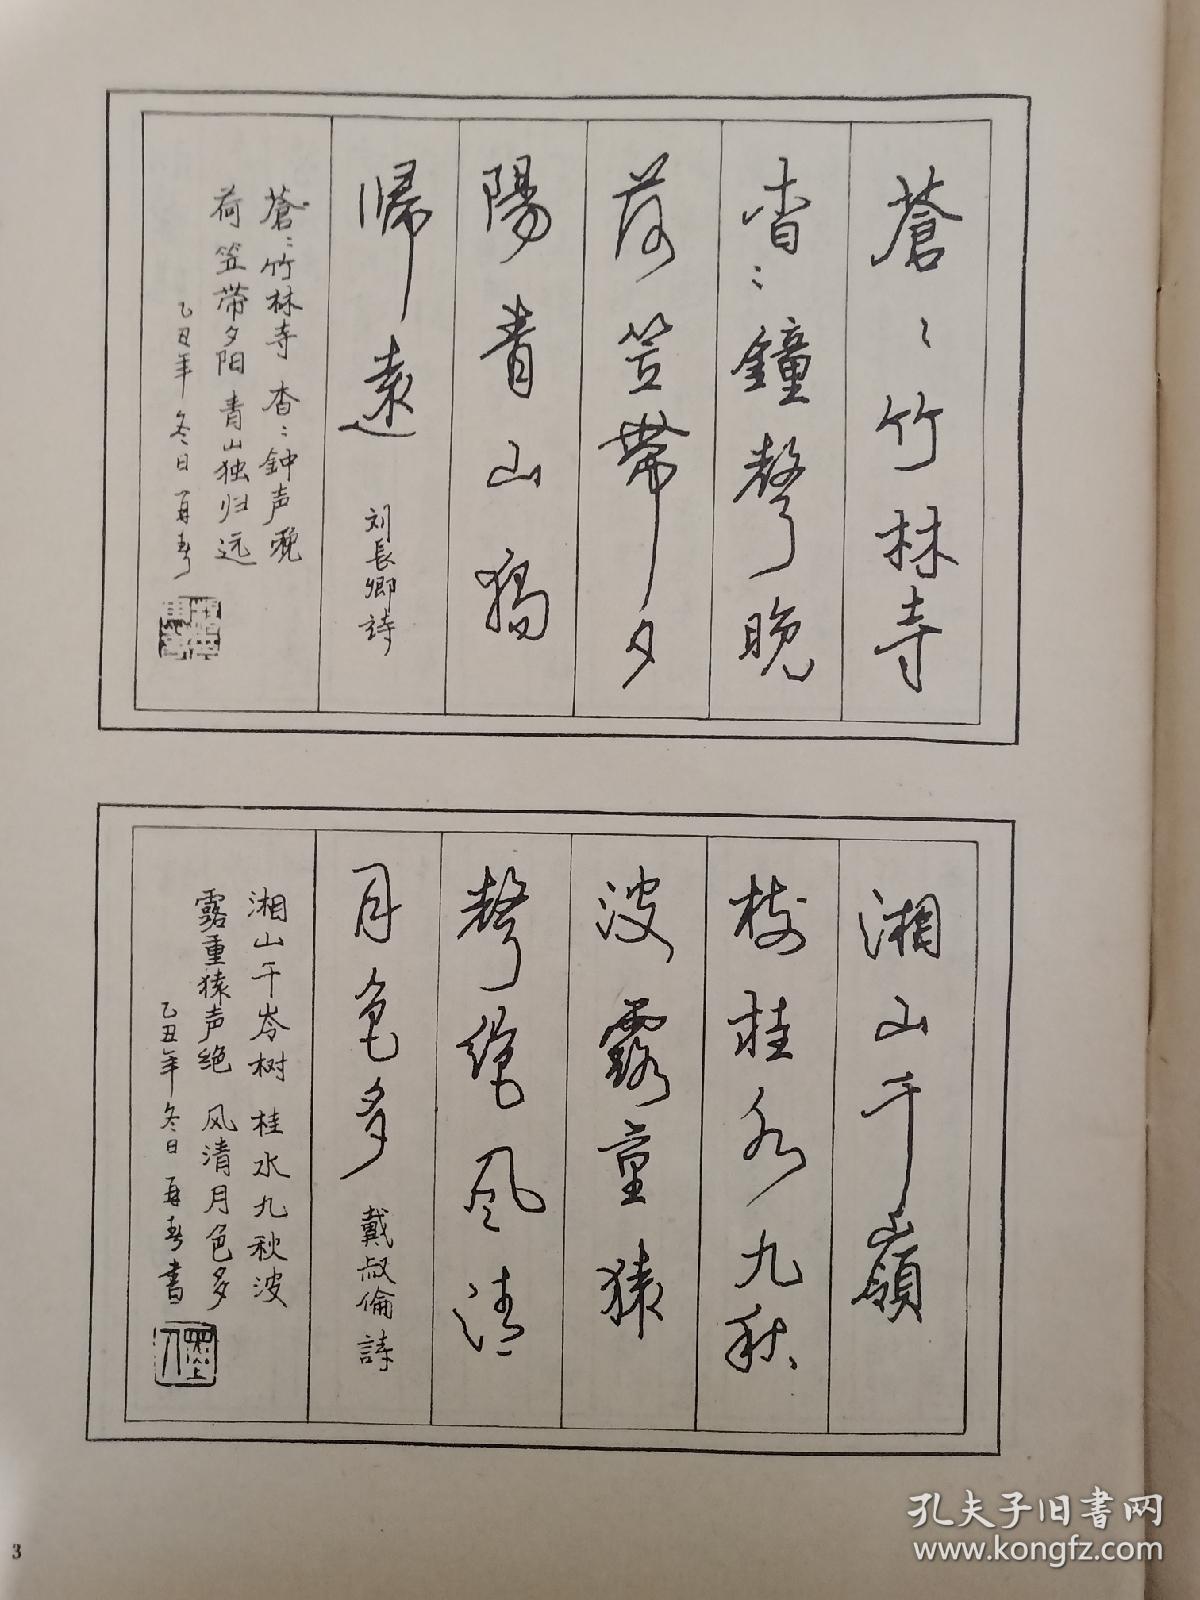 蒼〻竹林寺
杳〻鐘聲晚
荷笠帶夕
陽青山獨
歸遠 刘長卿詩
蒼〻竹林寺 杳〻鈡声晚
荷笠带夕阳 青山独归远
乙丑年冬日再春
湘山千嶺
樹桂水九秋
波露重猿
聲絕風清
月色多 戴叔倫詩
湘山千岑树 桂水九秋波
露重猿声绝 风清月色多
乙丑年冬日再春書
3
孔夫子旧书网
www.kongfz.com